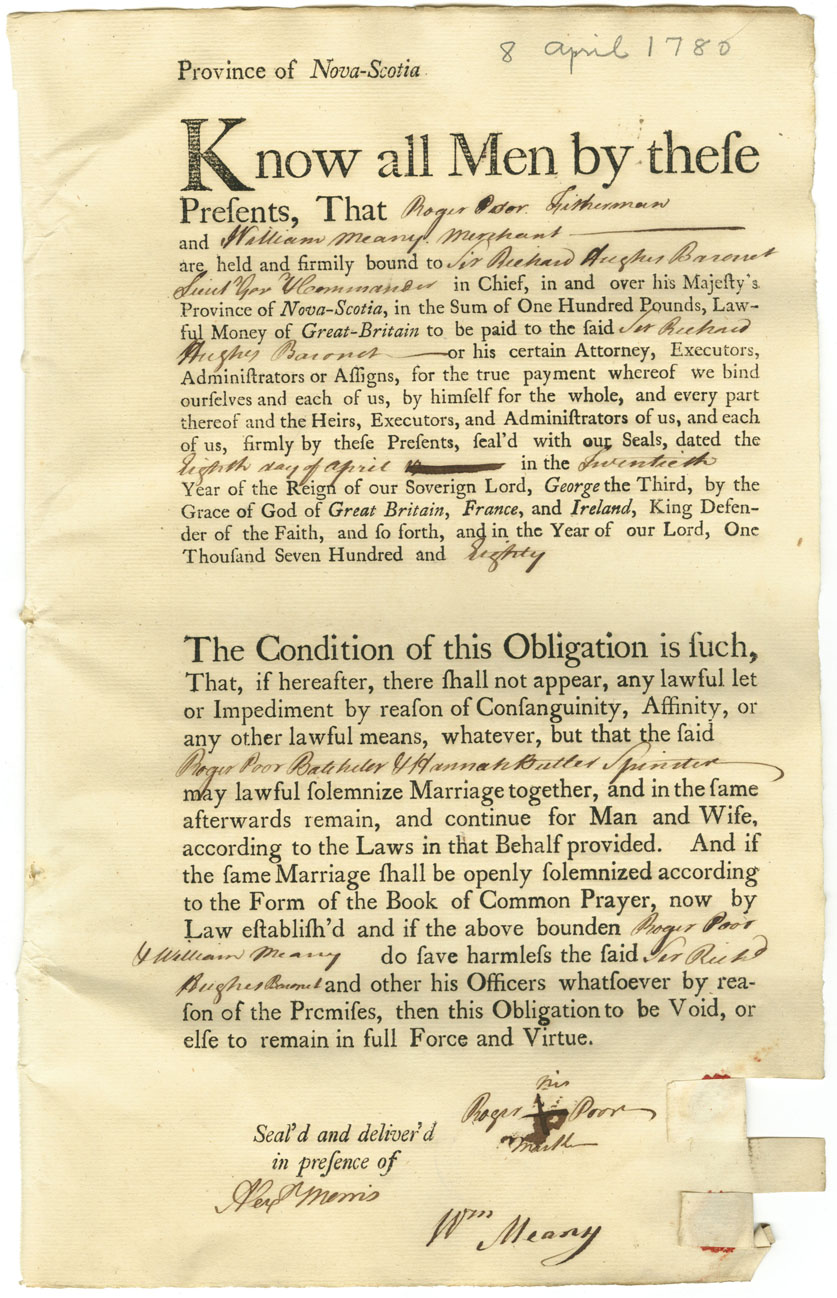 8 April 1780
Province of Nova-Scotia
Know all Men by theſe
Preſents, That Roger Poor Fisherman
and William Meany Merchant
are held and firmily bound to Sir Richard Hughes Baronet
Lieut Gov & Commander in Chief, in and over his Majeſty's
Province of Nova-Scotia, in the Sum of One Hundred Pounds, Law-
ful Money of Great-Britain to be paid to the ſaid Sir Richard
Hughes Baronet or his certain Attorney, Executors,
Adminiſtrators or Aſſigns, for the true payment whereof we bind
ourſelves and each of us, by himſelf for the whole, and every part
thereof and the Heirs, Executors, and Adminiſtrators of us, and each
of us, firmly by theſe Preſents, ſeal'd with our Seals, dated the
Eighth day of April in the Twentieth
Year of the Reign of our Soverign Lord, George the Third, by the
Grace of God of Great Britain, France, and Ireland, King Defen-
der of the Faith, and ſo forth, and in the Year of our Lord, One
Thouſand Seven Hundred and Eighty
The Condition of this Obligation is ſuch,
That, if hereafter, there ſhall not appear, any lawful let
or Impediment by reaſon of Conſanguinity, Affinity, or
any other lawful means, whatever, but that the ſaid
Roger Poor Batcheler & Hannah Butler Spinster
may lawful ſolemnize Marriage together, and in the ſame
afterwards remain, and continue for Man and Wife,
according to the Laws in that Behalf provided. And if
the ſame Marriage ſhall be openly ſolemnized according
to the Form of the Book of Common Prayer, now by
Law eſtabliſh'd and if the above bounden Roger Poor
& William Meany do ſave harmleſs the ſaid Sir Richd
Hughes Baronet and other his Officers whatſoever by rea-
ſon of the Premiſes, then this Obligation to be Void, or
elſe to remain in full Force and Virtue.
his
Roger Poor
mark
Seal'd and deliver'd
in preſence of
Alexr Morris
Wm Meany